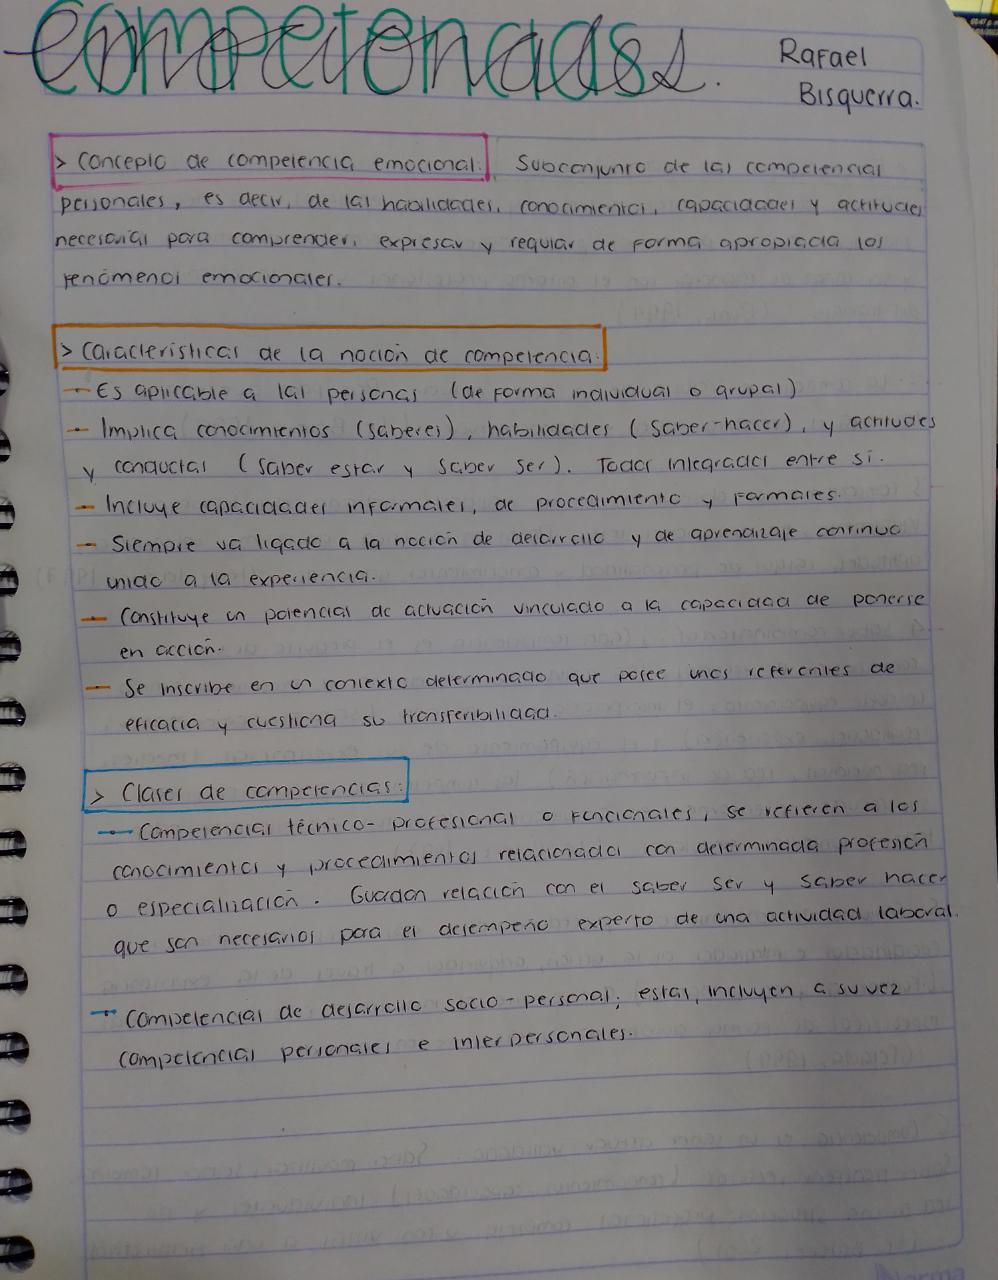 competencias.
Rafael
Bisquerra.
> Concepto de competencia emocional: Subconjunto de las competencias
personales, es decir, de las habilidades, conocimientos, capacidades y actitudes
necesarias para comprender, expresar y regular de forma apropiada los
fenómenos emocionales.
> Características de la noción de competencia:
- Es aplicable a las personas (de forma individual o grupal)
- Implica conocimientos (saberes), habilidades (saber-hacer), y actitudes
y conductas (saber estar y saber ser). Todos integrados entre sí.
- Incluye capacidades informales, de procedimiento y formales.
- Siempre va ligado a la noción de desarrollo y de aprendizaje continuo
unido a la experiencia.
- Constituye un potencial de actuación vinculado a la capacidad de ponerse
en acción.
- Se inscribe en un contexto determinado que posee unos referentes de
eficacia y cuestiona su transferibilidad.
> Clases de competencias:
- Competencias técnico-profesional o funcionales, se refieren a los
conocimientos y procedimientos relacionados con determinada profesión
o especialización. Guardan relación con el saber ser y saber hacer
que son necesarios para el desempeño experto de una actividad laboral.
- Competencias de desarrollo socio-personal; estas, incluyen a su vez
competencias personales e interpersonales.
Norma